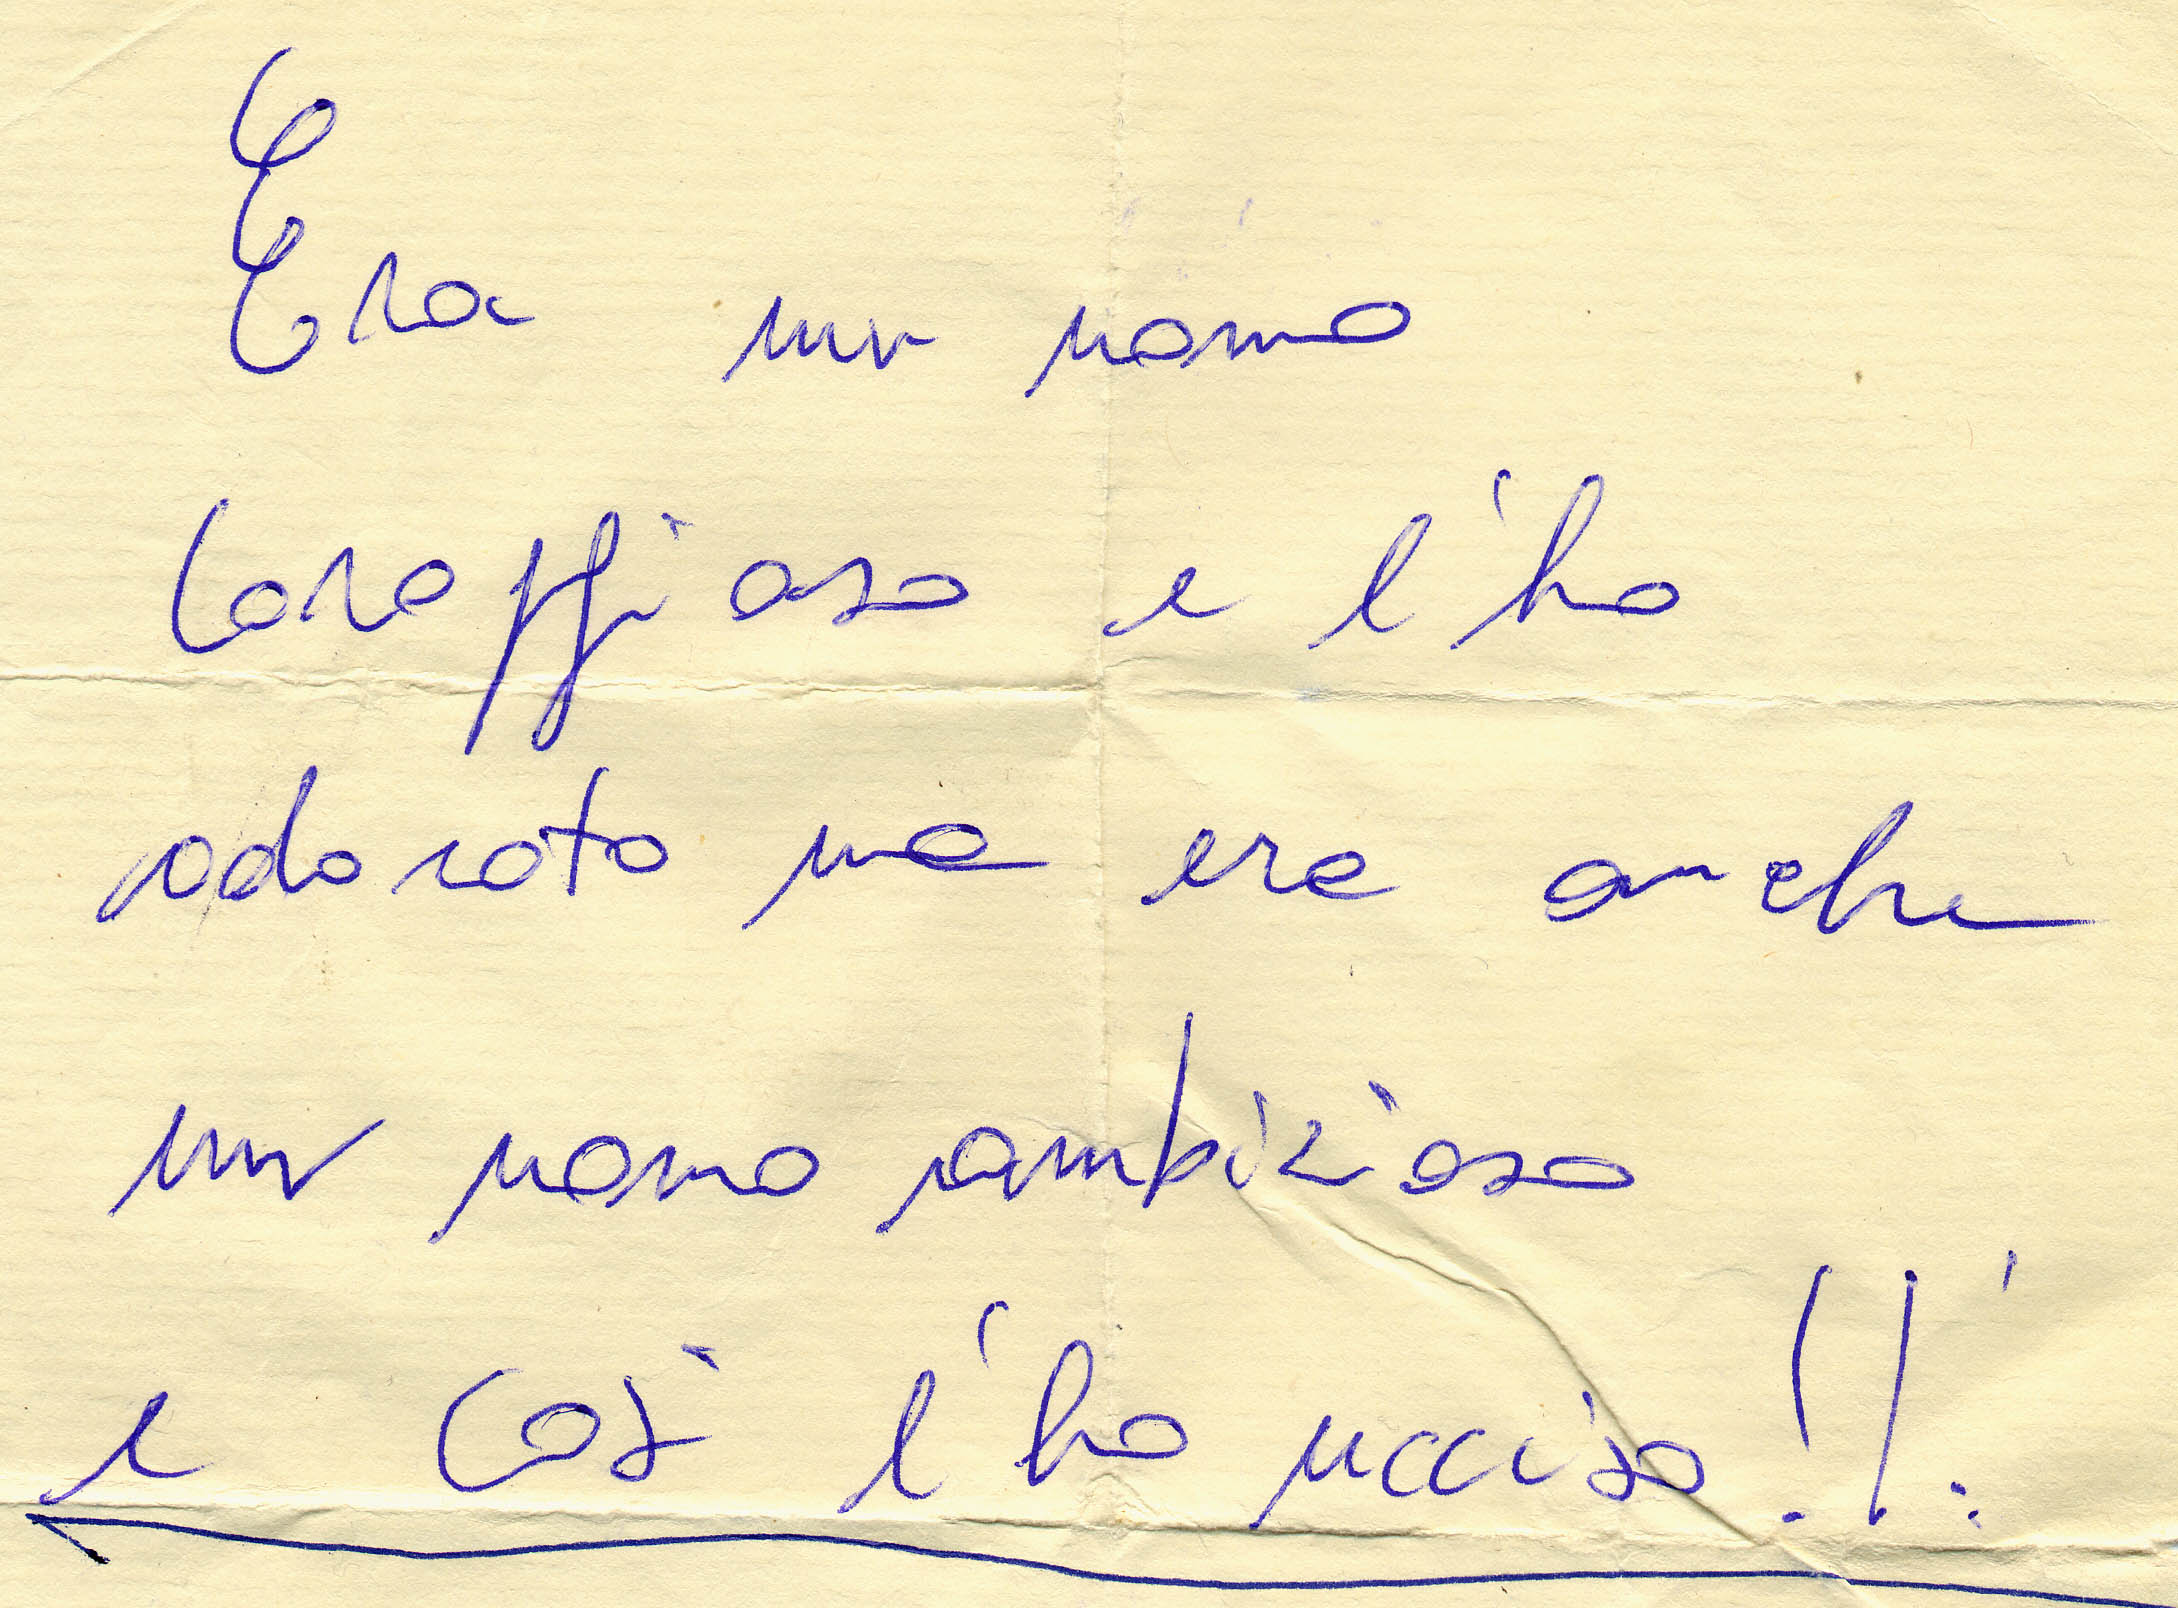 Era un uomo
Coraggioso e l'ho
adorato ma era anche
un uomo ambizioso
e così l'ho ucciso!!!